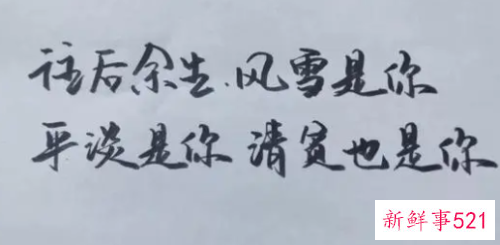 往后余生.风雪是你
平淡是你 清贫也是你
新鲜事521